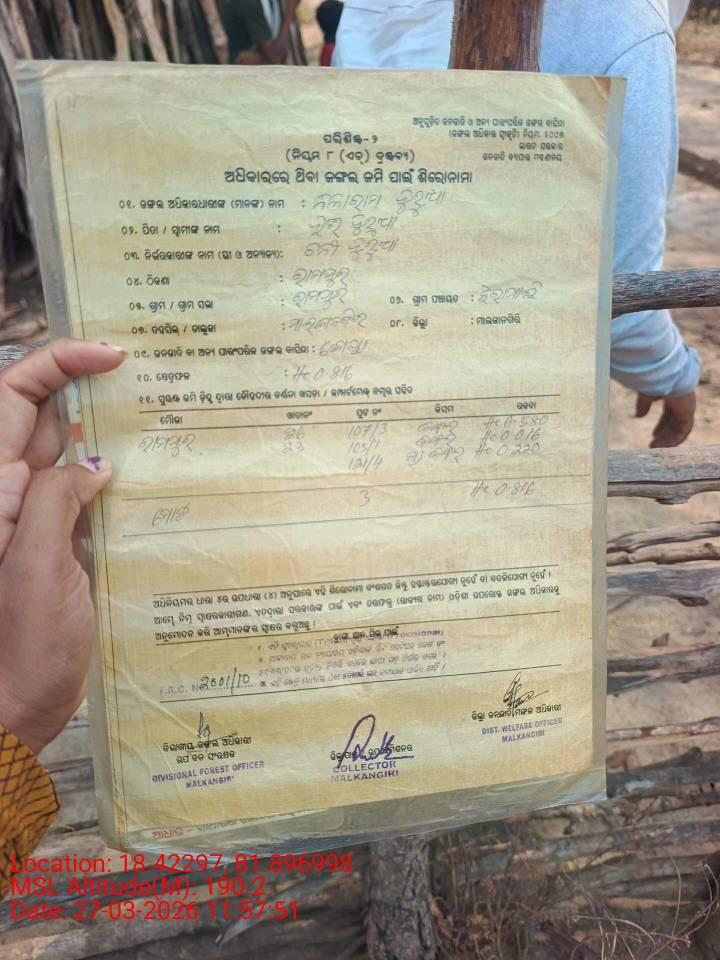 ଅନୁସୂଚିତ ଜନଜାତି ଓ ଅନ୍ୟ ପାରମ୍ପରିକ ଜଙ୍ଗଲ ବାସିନ୍ଦା
(ଜଙ୍ଗଲ ଅଧିକାର ସ୍ୱୀକୃତି) ନିୟମ, ୨୦୦୭
ଭାରତ ସରକାର
ଜନଜାତି ବ୍ୟାପାର ମନ୍ତ୍ରଣାଳୟ
ପରିଶିଷ୍ଟ-୨
(ନିୟମ ୮ (ଏଚ୍) ଦ୍ରଷ୍ଟବ୍ୟ)
ଅଧିକାରରେ ଥିବା ଜଙ୍ଗଲ ଜମି ପାଇଁ ଶିରୋନାମା
୦୧. ଜଙ୍ଗଲ ଅଧିକାରଧାରୀଙ୍କ (ମାନଙ୍କ) ନାମ :
୦୨. ପିତା / ସ୍ୱାମୀଙ୍କ ନାମ :
୦୩. ନିର୍ଭରକାରୀଙ୍କ ନାମ (ସ୍ତ୍ରୀ ଓ ଅନ୍ୟାନ୍ୟ):
୦୪. ଠିକଣା : ରାମପୁର
୦୫. ଗ୍ରାମ / ଗ୍ରାମ ସଭା : ରାମପୁର ୦୬. ଗ୍ରାମ ପଞ୍ଚାୟତ :
୦୭. ତହସିଲ / ତାଲୁକା : ମାଲକାନଗିରି ୦୮. ଜିଲ୍ଲା : ମାଲକାନଗିରି
୦୯. ଜନଜାତି ବା ଅନ୍ୟ ପାରମ୍ପରିକ ଜଙ୍ଗଲ ବାସିନ୍ଦା : କୋୟା
୧୦. କ୍ଷେତ୍ରଫଳ : Hc 0.816
୧୧. ସୁସ୍ପଷ୍ଟ ଜମି ଚିହ୍ନ ଦ୍ୱାରା ଚୌହଦୀର ବର୍ଣ୍ଣନା ଖସଡ଼ା / କମ୍ପାର୍ଟମେଣ୍ଟ ନମ୍ବର ସହିତ
ମୌଜା ଖାତାନଂ ପ୍ଲଟ ନଂ କିସମ ରକବା
ରାମପୁର 26 107/3 ଜଙ୍ଗଲ Hc 0.580
23 105/1 ଜଙ୍ଗଲ Hc 0.016
121/4 ଜଙ୍ଗଲ Hc 0.220
ମୋଟ 3 Hc 0.816
ଅଧିନିୟମର ଧାରା ୪ର ଉପଧାରା (୪) ଅନୁସାରେ ଏହି ଶିରୋନାମା ବଂଶଗତ କିନ୍ତୁ ହସ୍ତାନ୍ତରଯୋଗ୍ୟ ନୁହେଁ ବା ବଦଳିଯୋଗ୍ୟ ନୁହେଁ ।
ଆମ୍ଭେ ନିମ୍ନ ସ୍ୱାକ୍ଷରକାରୀଗଣ, ଏତଦ୍ୱାରା ସରକାରଙ୍କ ପାଇଁ ଏବଂ ତରଫରୁ (ରାଜ୍ୟର ନାମ) ଓଡ଼ିଶା ଉପରୋକ୍ତ ଜଙ୍ଗଲ ଅଧିକାରକୁ
ଅନୁମୋଦନ କରି ଆମ୍ଭମାନଙ୍କର ସ୍ୱାକ୍ଷର କରୁଅଛୁ ।
F.R.C. No 2001/10
ବିଭାଗୀୟ ଜଙ୍ଗଲ ଅଧିକାରୀ
ଉପ ବନ ସଂରକ୍ଷକ
DIVISIONAL FOREST OFFICER
MALKANGIRI
COLLECTOR
MALKANGIRI
ଜିଲ୍ଲା ଜନଜାତି ମଙ୍ଗଳ ଅଧିକାରୀ
DIST. WELFARE OFFICER
MALKANGIRI
Location: 18.42297, 81.896998
MSL Altitude(M): 190.2
Date: 27-03-2026 11:57:51